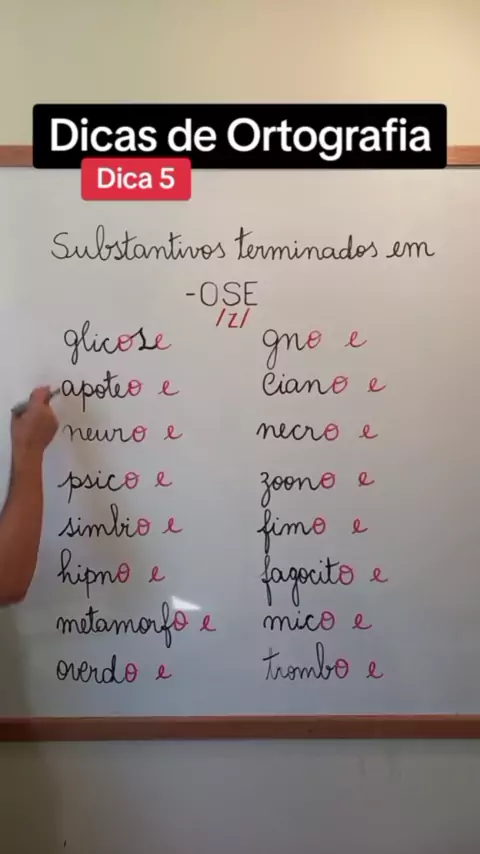 Dicas de Ortografia
Dica 5
Substantivos terminados em
-OSE
/z/
glicose
apoteo e
neuro e
psico e
simbio e
hipno e
metamorfo e
overdo e
gno e
ciano e
necro e
zoono e
fimo e
fagocito e
mico e
trombo e